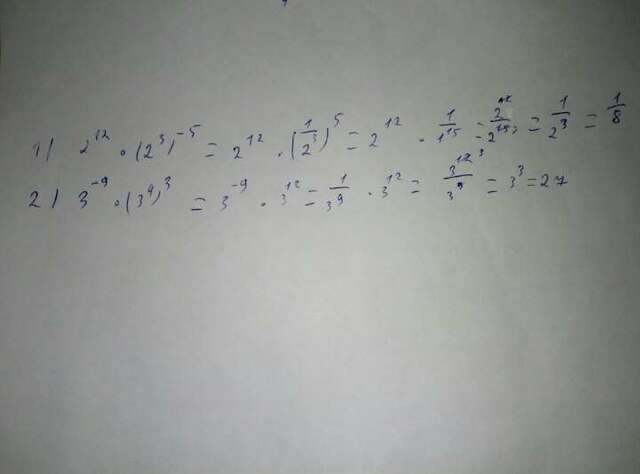 1) 2¹² · (2³)⁻⁵ = 2¹² · (1/2³)⁵ = 2¹² · 1/1¹⁵ = 2¹²/2¹⁵ = 1/2³ = 1/8
2) 3⁻⁹ · (3⁴)³ = 3⁻⁹ · 3¹² = 1/3⁹ · 3¹² = 3¹²/3⁹ = 3³ = 27